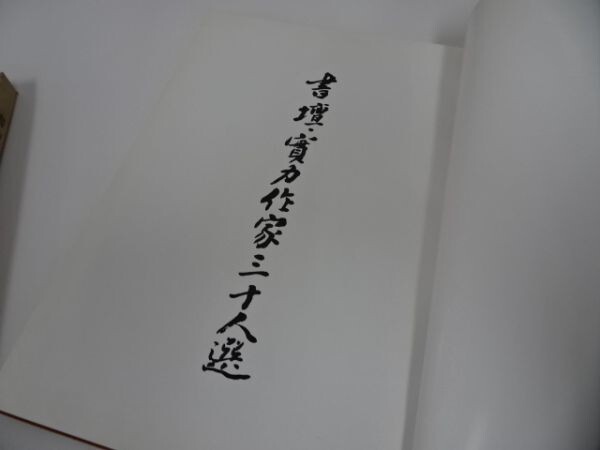 書壇・實力作家三十人選